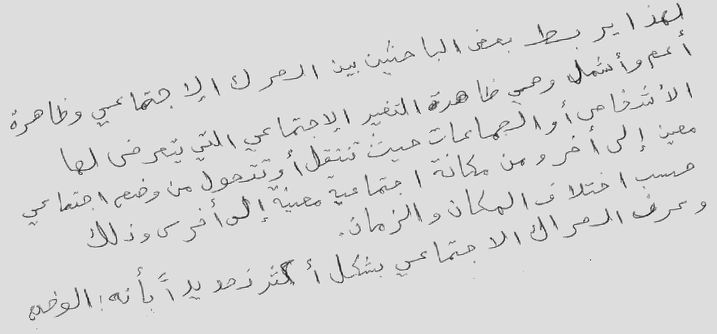 لهذا يربط بعض الباحثين بين الحراك الإجتماعي وظاهرة
أعم وأشمل وهي ظاهرة التغير الإجتماعي التي يتعرض لها
الأشخاص أو الجماعات حيث تنتقل أو تتحول من وضع اجتماعي
معين إلى أخر ومن مكانة اجتماعية معينة إلى أخرى وذلك
حسب اختلاف المكان والزمان.
وعرف الحراك الاجتماعي بشكل أكثر تحديداً بأنه: الوضع